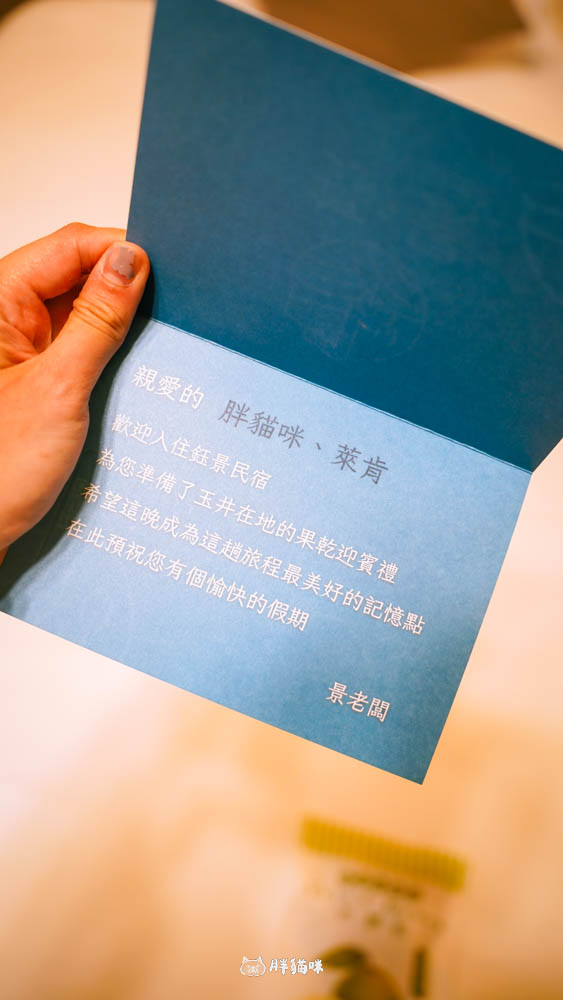 親愛的 胖貓咪、萊肯
歡迎入住鈺景民宿
為您準備了玉井在地的果乾迎賓禮
希望這晚成為這趟旅程最美好的記憶點
在此預祝您有個愉快的假期
景老闆
胖貓咪